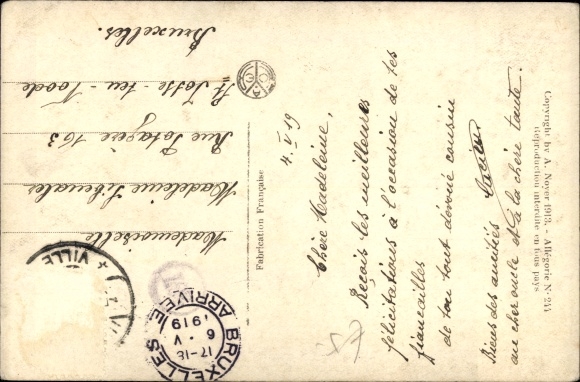 Copyright by A. Noyer 1913. - Allégorie N° 241
Reproduction interdite en tous pays
Fabrication Française
4. V 19
Chère Madeleine,
Reçois les meilleures
félicitations à l'occasion de tes
fiançailles
de ton tout dévoué cousin
Lucien
Biens des amitiés
au cher oncle et à la chère tante.
Mademoiselle
Madeleine
Rue Potagère 163
St Josse - ten - Noode
Bruxelles.
VILLE
BRUXELLES
17-18
6 V
1919
ARRIVÉE